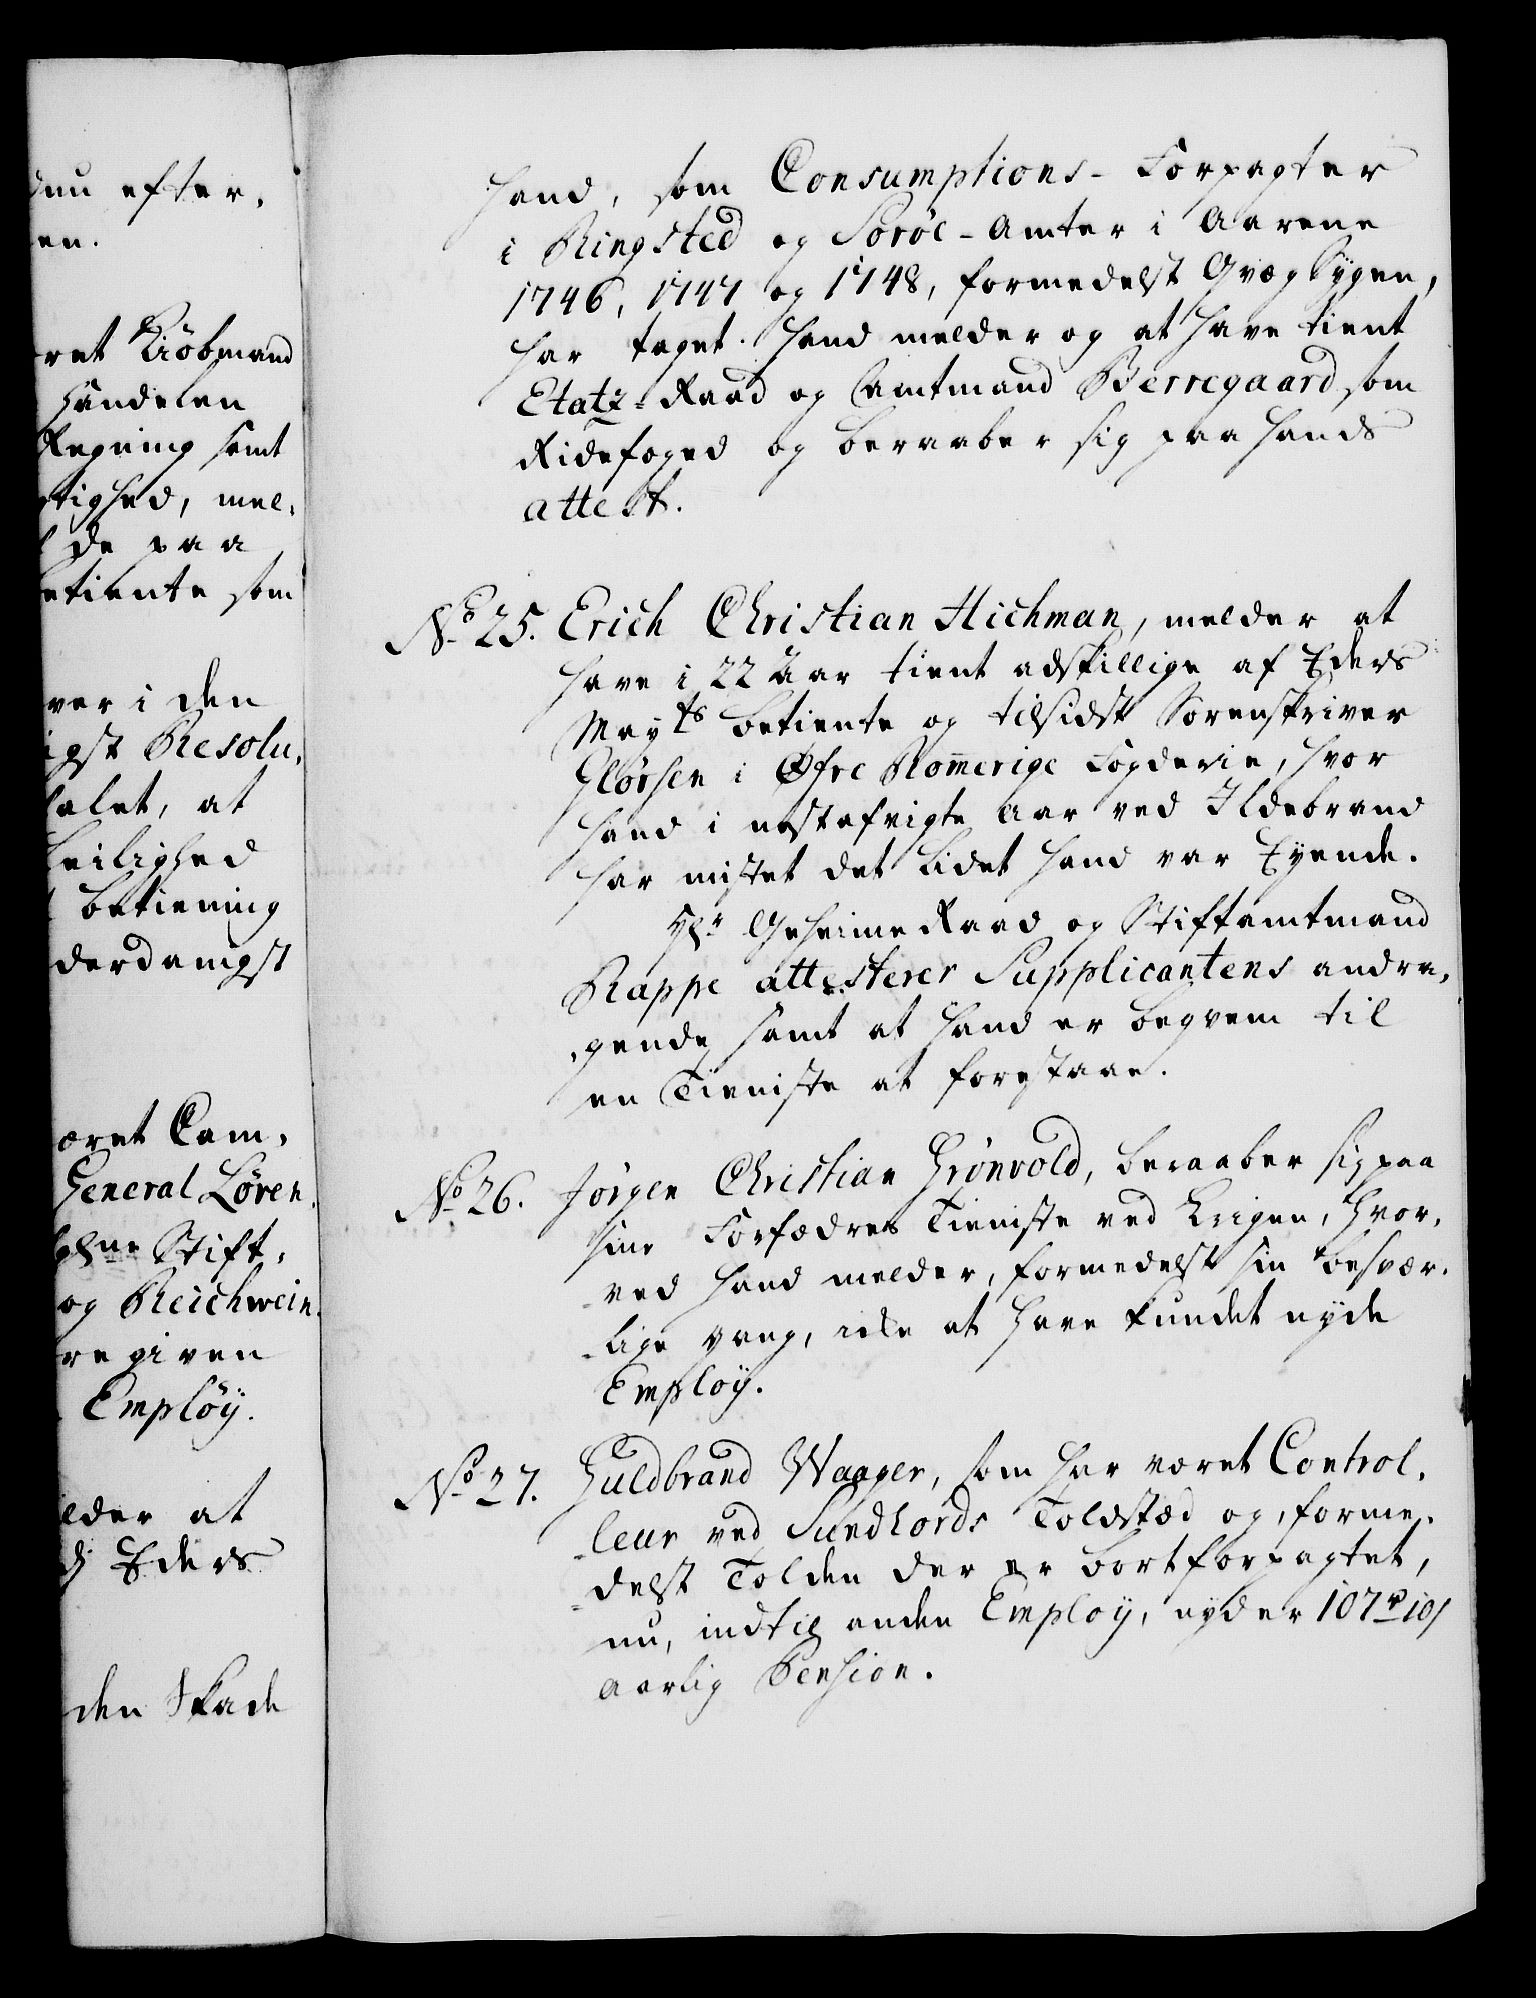 dnu efter,
en.
ret Kiöbmand
Handelen
Regning samt
tighed, mel,
de paa
etiente som
ver i den
igst Resolu,
alet, at
eilighed
betiening
derdanigst
æret Cam,
General Løven,
Stift,
og Reichwein,
re given
Emplöÿ.
elder at
Eders
den Skade
hand, som Consumptions-Forpagter
i Ringsted og Sorøe-Amter i Aarene
1746, 1747 og 1748, formedelst Qvæg Sygen,
har taget. Hand melder og at have tient
Etatz-Raad og Amtmand Berregaard som
Ridefoged og beraaber sig paa hands
attest.
No 25. Erich Christian Hichman, melder at
have i 22 Aar tient adskillige af Eders
Mayts betiente og tilsidst Sorenskriver
Glørsen i Øfre Romerige Fogderie, hvor
hand i nestafvigte Aar ved Ildebrand
har mistet det Lidet hand var Eyende.
Hr Geheime Raad og Stiftamtmand
Rappe attesterer Supplicantens andra,
gende samt at hand er beqvem til
en Tieniste at forestaae.
No 26. Jørgen Christian Grønvold, beraaber sig paa
sine Forfædres Tieniste ved Krigen, hvor,
ved hand melder, formedelst sin besvær,
lige gang, icke at have kundet nyde
Employ.
No 27. Guldbrand Waager, som har været Control,
leur ved Sundhords Toldstæd og, forme,
delst Tolden der er bortforpagtet,
nu, indtil anden Employ, nyder 107 rd 10 s
aarlig Pension.